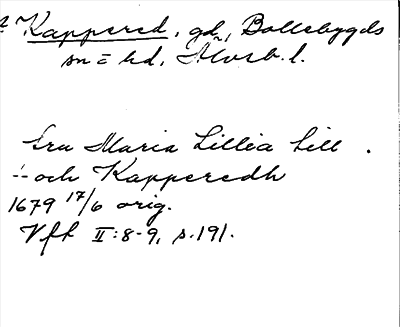 Kappered, gd, Bollebygds
sn = hd, Älvsb. l.
fru Maria Lillia till
-- och Kapperedh
1679 17/6 orig.
Vfl II:8-9, s. 191.